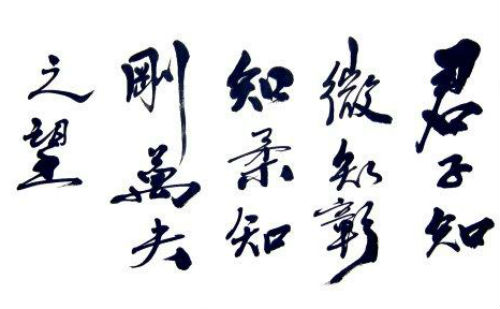 君子知
微知彰
知柔知
剛萬夫
之望